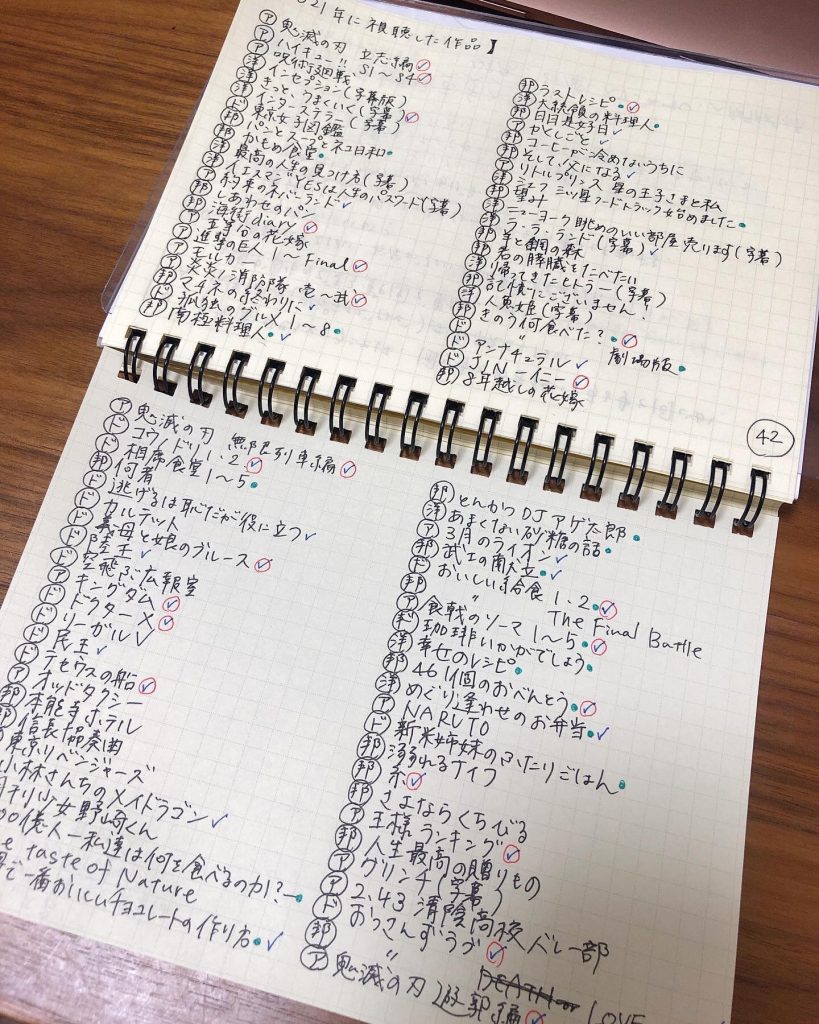 21年に視聴した作品】
ア 鬼滅の刃 立志編
ア ハイキュー!! S1〜S4
ア 呪術廻戦
洋 インセプション(字幕版)
洋 きっと、うまくいく(字幕)
洋 インターステラー(字幕)
ド 東京女子図鑑
ド パンとスープとネコ日和
邦 かもめ食堂
洋 最高の人生の見つけ方(字幕)
洋 イエスマン"YES"は人生のパスワード(字幕)
ア 約束のネバーランド
邦 しあわせのパン
邦 海街diary
ア 五等分の花嫁
ア 進撃の巨人 1〜Final
ア モルカー
ア 炎炎ノ消防隊 壱〜弐
邦 マチネの終わりに
ド 孤独のグルメ 1〜8
邦 南極料理人
邦 ラストレシピ
洋 大統領の料理人
邦 日日是好日
ア かくしごと
邦 コーヒーが冷めないうちに
邦 そして父になる
洋 リトルプリンス 星の王子さまと私
洋 シェフ 三ツ星フードトラック始めました
邦 望み
洋 ニューヨーク 眺めのいい部屋売ります(字幕)
洋 ラ・ラ・ランド(字幕)
邦 羊と鋼の森
邦 君の膵臓をたべたい
洋 帰ってきたヒトラー(字幕)
邦 記憶にございません!
洋 人魚姫(字幕)
ド きのう何食べた?
邦 〃 劇場版
ド アンナチュラル
ド JIN-仁-
邦 8年越しの花嫁
42
ア 鬼滅の刃 無限列車編
ド コウノドリ 1.2
ド 相席食堂 1〜5
邦 何者
ド 逃げるは恥だが役に立つ
ド カルテット
ド 義母と娘のブルース
ド 陸王
ド 空飛ぶ広報室
ア キングダム
ド ドクターX
ド リーガルV
ド 民王
ド テセウスの船
ア オッドタクシー
邦 本能寺ホテル
邦 信長協奏曲
東京リベンジャーズ
小林さんちのメイドラゴン
月刊少女野崎くん
00億人-私達は何を食べるのか?-
e taste of Nature
で一番おいしいチョコレートの作り方
邦 とんかつDJアゲ太郎
洋 あまくない砂糖の話
ア 3月のライオン
邦 武士の献立
ド おいしい給食 1.2
邦 〃 The Final Battle
ア 食戟のソーマ 1〜5
ド 珈琲いかがでしょう
洋 幸せのレシピ
邦 461個のおべんとう
洋 めぐり逢わせのお弁当
ア NARUTO
ド 新米姉妹のふたりごはん
邦 溺れるナイフ
邦 糸
邦 さよならくちびる
ア 王様ランキング
邦 人生最高の贈りもの
ア グリンチ(字幕)
ア 2.43 清陰高校バレー部
ド おっさんずラブ
邦 〃 LOVE
ア 鬼滅の刃 遊郭編